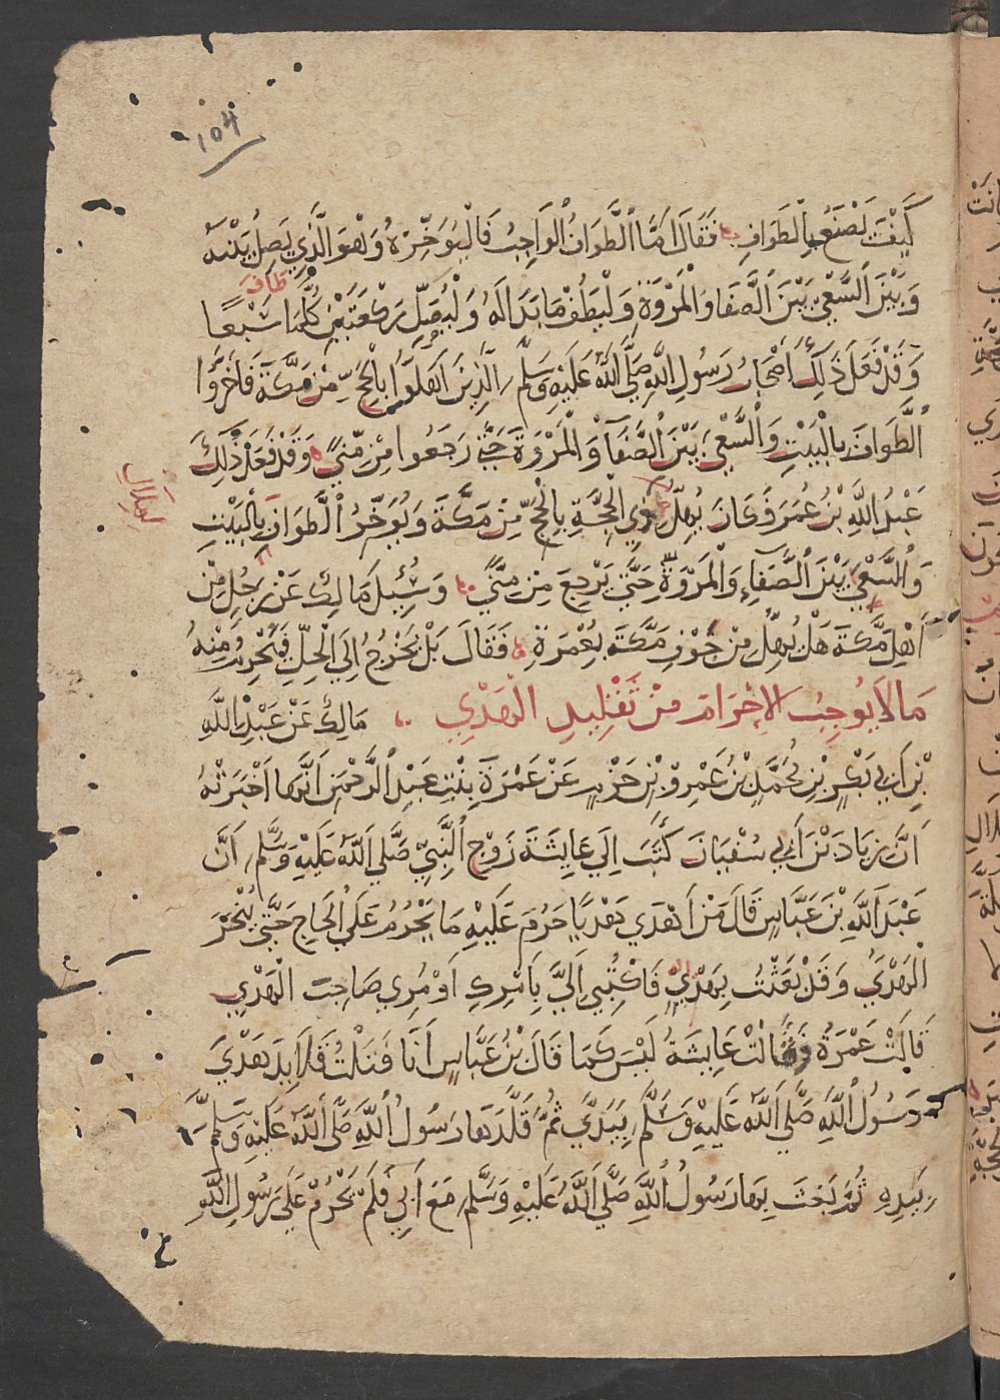 104
كَيْفَ يَصْنَعُ بِالطَّوَافِ فَقَالَ اَمَّا الطَّوَافُ الْوَاجِبُ فَالْيُوَخِّرْهُ وَهْوَ الَّذِي يَصِلُ بَيْنَهُ
وَبَيْنَ السَّعْيِ بَيْنَ الصَّفَا وَالْمَرْوَةِ وَلْيَطُفْ مَا بَدَا لَهُ وَلْيُصَلِّ رَكْعَتَيْنِ كُلَّمَا طَافَ سَبْعًا
وَقَدْ فَعَلَ ذَلِكَ اَصْحَابُ رَسُولِ اللَّهِ صَلَّى اللَّهُ عَلَيْهِ وَسَلَّمَ الَّذِينَ اَهَلُّوا بِالْحَجِّ مِنْ مَكَّةَ فَاَخَّرُوا
الطَّوَافَ بِالْبَيْتِ وَالسَّعْيَ بَيْنَ الصَّفَا وَالْمَرْوَةَ حَتَّى رَجَعُوا مِنْ مِنًى وَقَدْ فَعَلَ ذَلِكَ
عَبْدُ اللَّهِ بْنُ عُمَرَ فَكَانَ يُهِلُّ ذِي الْحِجَّةِ بِالْحَجِّ مِنْ مَكَّةَ وَيُوَخِّرُ الطَّوَافَ بِالْبَيْتِ
لِهِلَالِ
وَالسَّعْيَ بَيْنَ الصَّفَاءِ وَالْمَرْوَةِ حَتَّى يَرْجِعَ مِنْ مِنًى وَسُئِيلَ مَالِكٌ عَنْ رَجُلٍ مِنْ
اَهْلِ مَكَّةَ هَلْ يُهِلُّ مِنْ جَوْفِ مَكَّةَ بِعُمْرَةٍ فَقَالَ بَلْ يَخْرُجُ اِلَى الْحِلِّ فَيُحْرِمُ مِنْهُ
مَا لَا يُوجِبُ الاِحْرَامَ مِنْ تَقْلِيدِ الْهَدْيِ مَالِكٌ عَنْ عَبْدِ اللَّهِ
بْنِ اَبِي بَكْرِ بْنِ مُحَمَّدِ بْنِ عَمْرِو بْنِ حَزْمٍ عَنْ عَمْرَةَ بِنْتِ عَبْدِ الرَّحْمَنِ اَنَّهَا اَخْبَرَتْهُ
اَنَّ زِيَادَ بْنَ اَبِي سُفْيَانَ كَتَبَ اِلَى عَايِشَةَ زَوْجِ النَّبِيِّ صَلَّى اللَّهُ عَلَيْهِ وَسَلَّمَ اَنَّ
عَبْدَ اللَّهِ بْنَ عَبَّاسٍ قَالَ مَنْ اَهْدَى هَدْيًا حَرُمَ عَلَيْهِ مَا يَحْرُمُ عَلَى الْحَاجِ حَتَّى يُنْحَرَ
الْهَدْيُ وَقَدْ بَعَثْتُ بِهَدْيٍ فَاكْتُبِي اِلَيَّ بِاَمْرِكِ اَوْ مُرِي صَاحِبَ الْهَدْيِ
قَالَتْ عَمْرَةُ فَقَالَتْ عَايِشَةُ لَيْسَ كَمَا قَالَ بْنُ عَبَّاسٍ اَنَا فَتَلْتُ قَلَايِدَ هَدْيَ
رَسُولُ اللَّهِ صَلَّى اللَّهُ عَلَيْهِ وَسَلَّمَ بِيَدَيَّ ثُمَّ قَلَّدَهَا رَسُولُ اللَّهِ صَلَّى اللَّهُ عَلَيْهِ وَسَلَّمَ
بِيَدِهِ ثُمَّ بَعَثَ بِهَا رَسُولُ اللَّهِ صَلَّى اللَّهُ عَلَيْهِ وَسَلَّمَ مَعَ اَبِي فَلَمْ يَحْرُمْ عَلَى رَسُولِ اللَّهِ